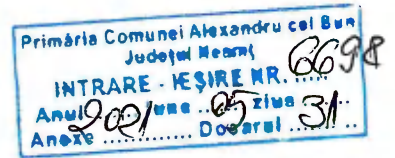 Primăria Comunei Alexandru cel Bun
Județul Neamț
INTRARE - IEȘIRE NR. 6698
Anul 2021 luna 05 ziua 31
Anexe ............ Dosarul ............